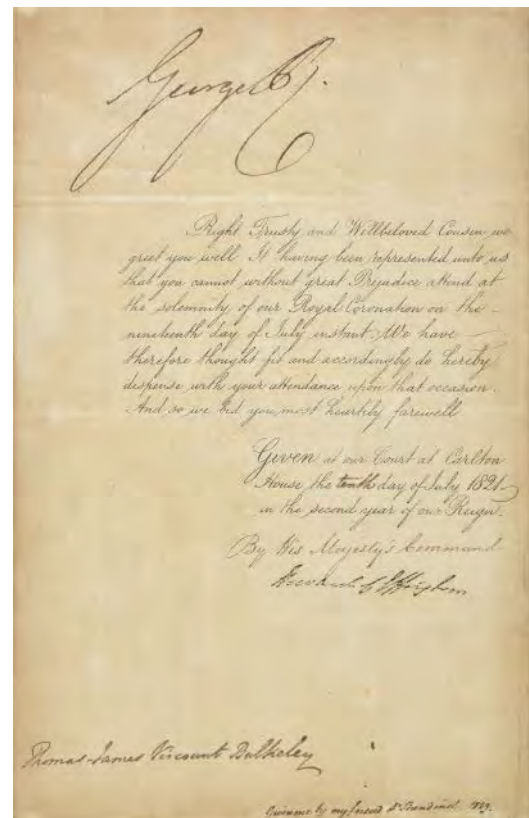 George R.
Right Trusty and Wellbeloved Cousin, we
greet you well. It having been represented unto us
that you cannot without great Prejudice attend at
the solemnity of our Royal Coronation on the
nineteenth day of July instant; We have
therefore thought fit and accordingly do hereby
dispense with your attendance upon that occasion.
And so we bid you most heartily farewell.
Given at our Court at Carlton
House the tenth day of July 1821
in the second year of our Reign.
By His Majesty's Command
Thomas-James Viscount Bulkeley
Given me by my friend